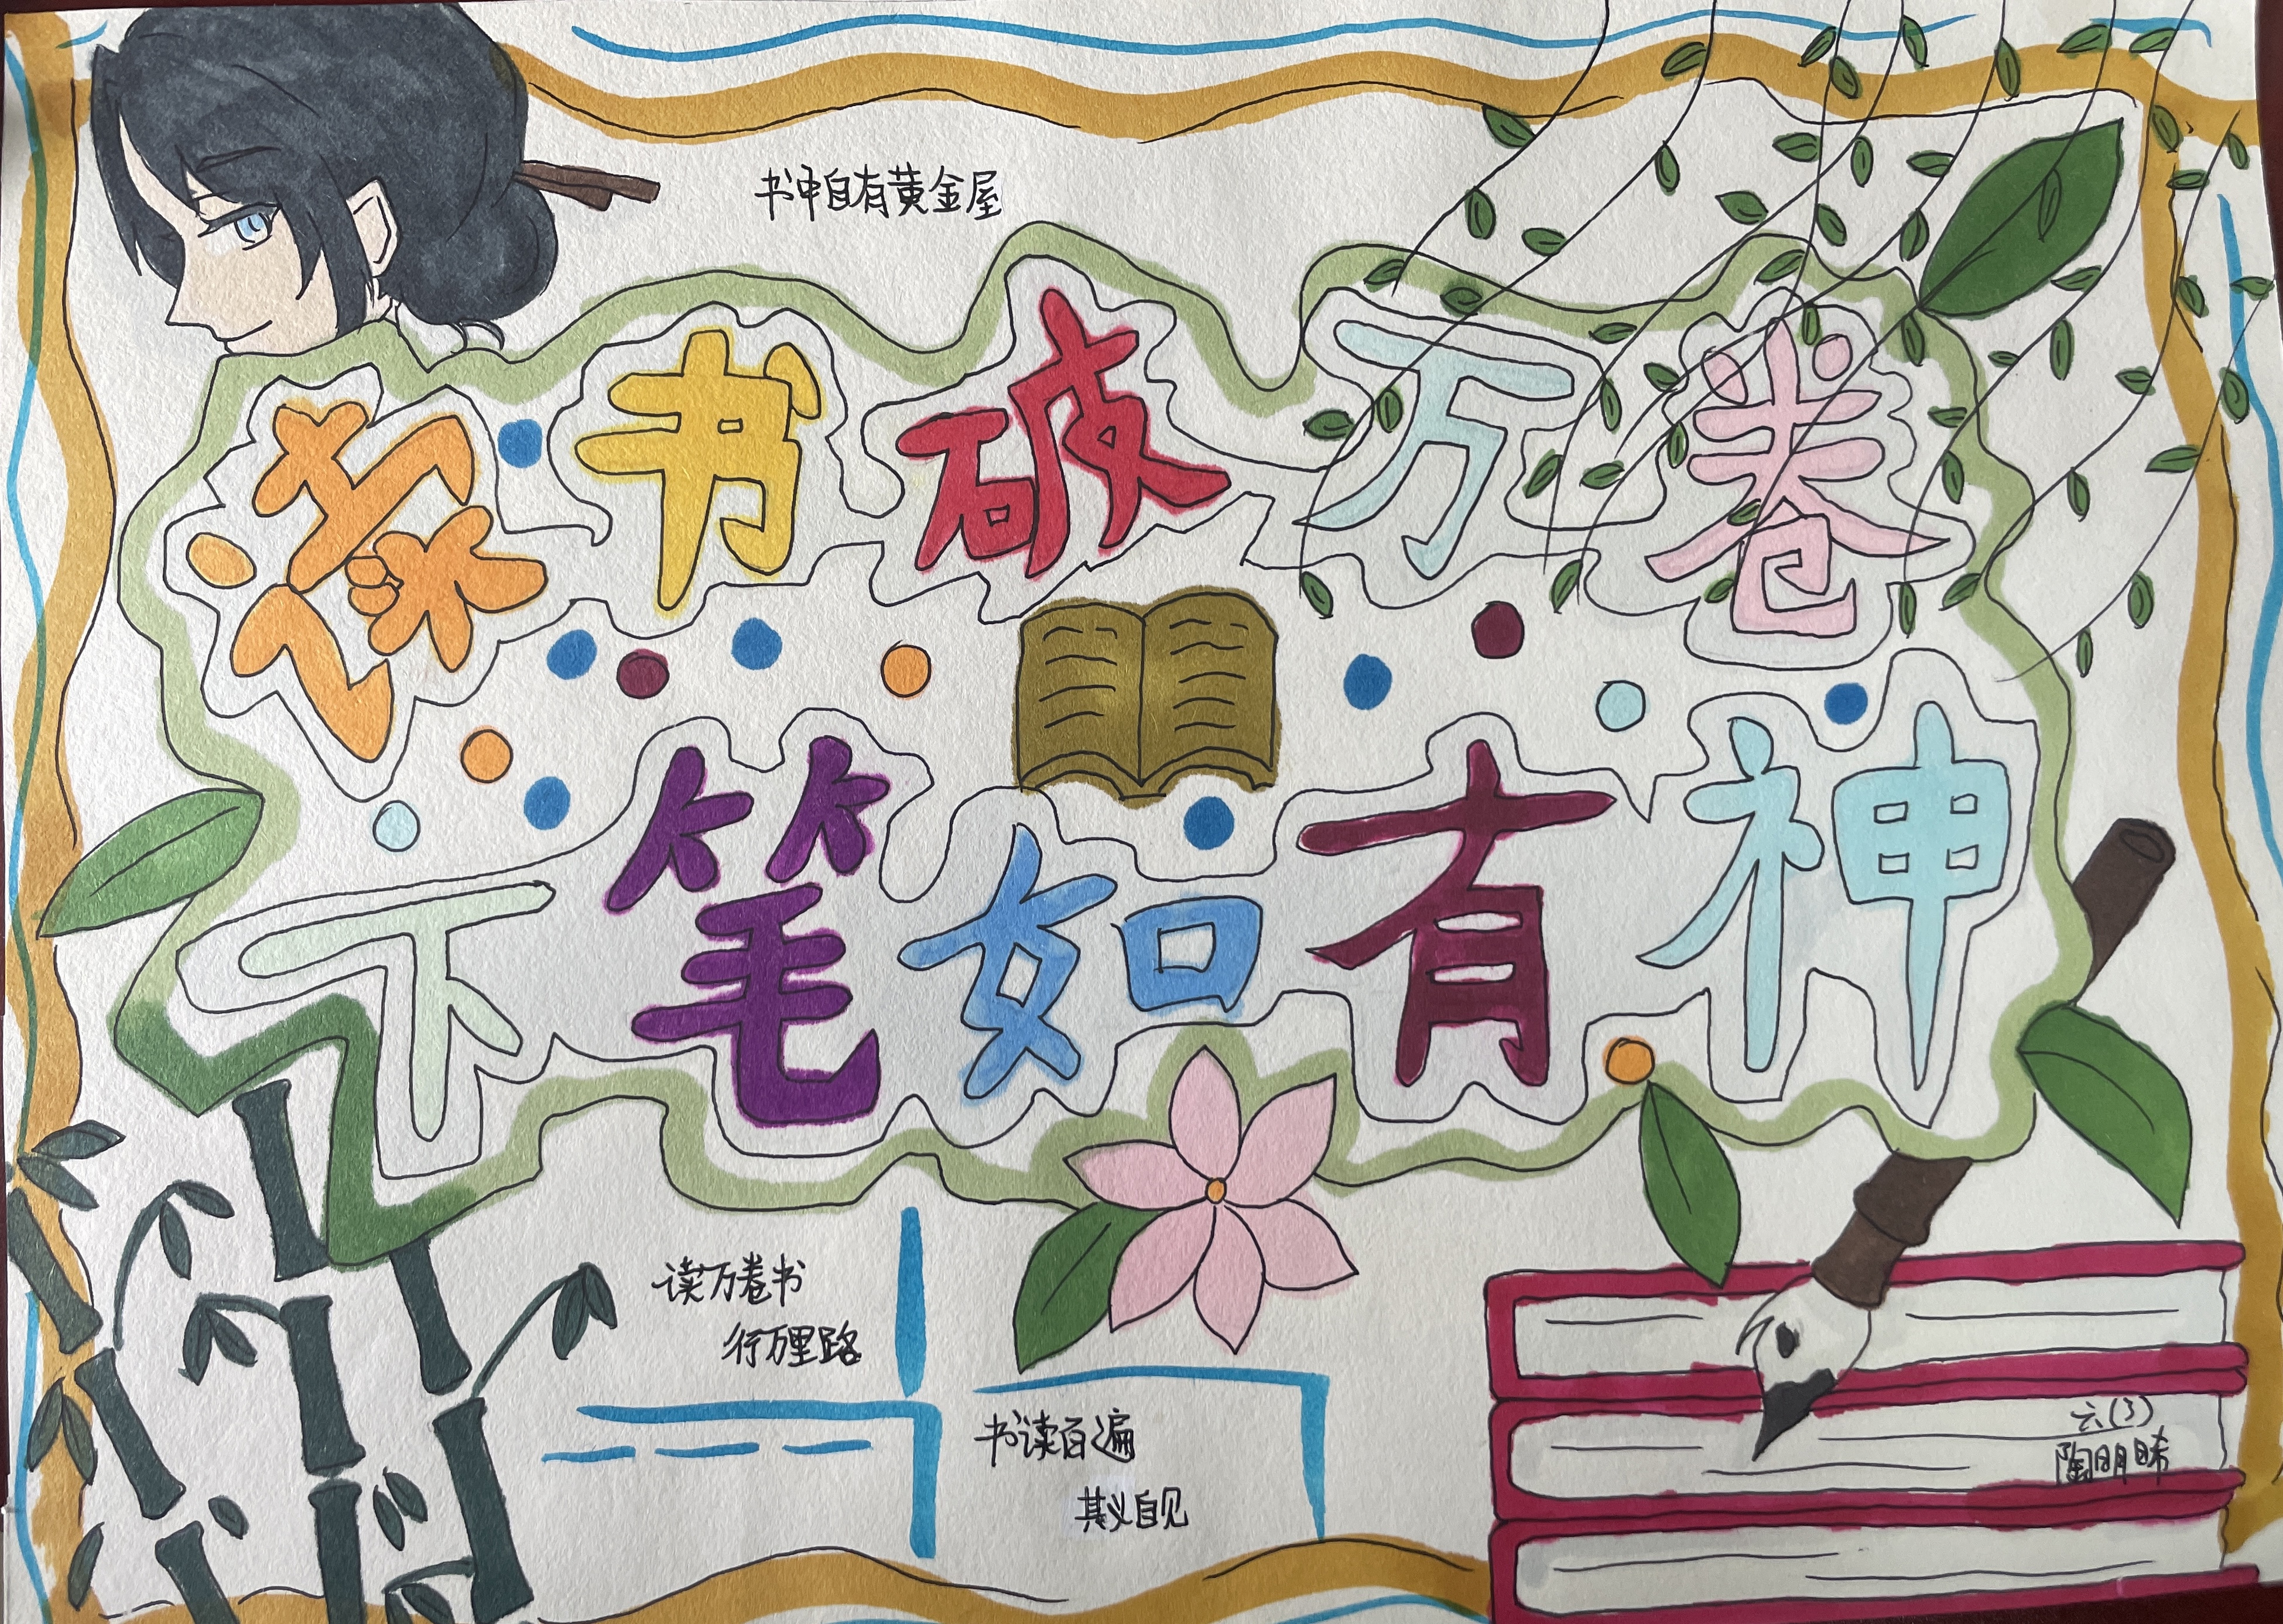 书中自有黄金屋
读书破万卷
下笔如有神
读万卷书
行万里路
书读百遍
其义自见
六(3)
陶明晞